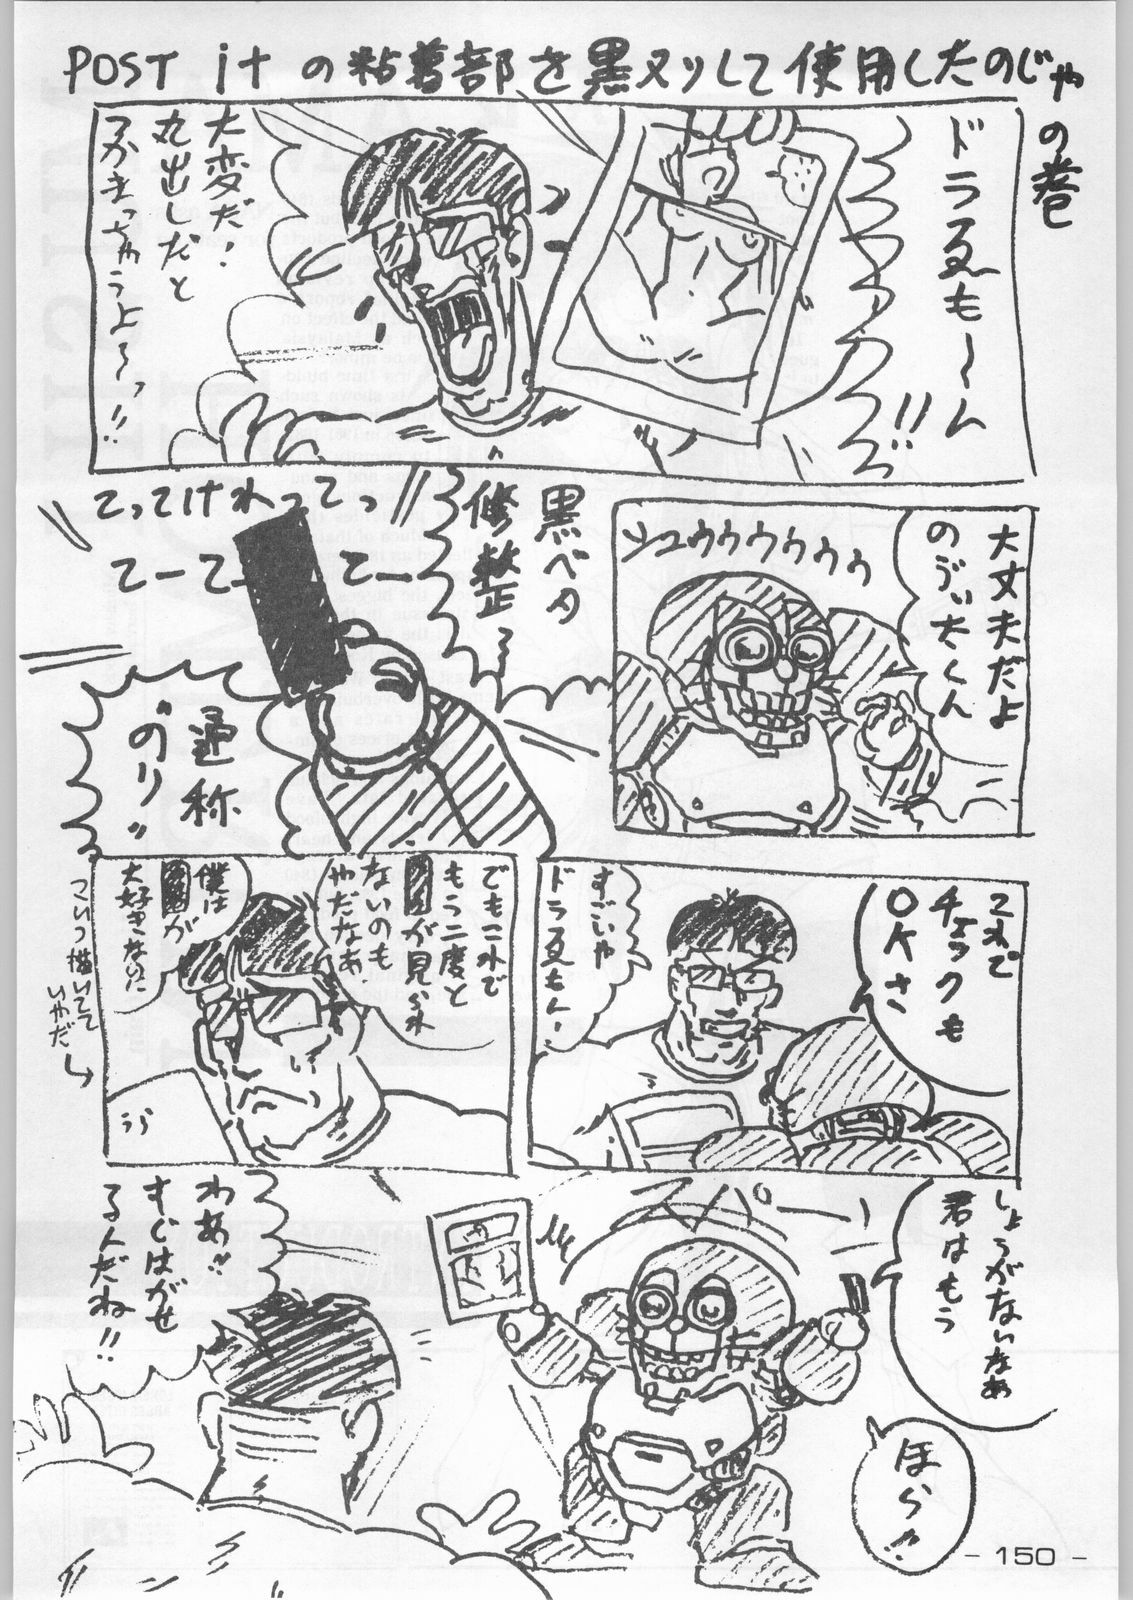 POST itの粘着部を黒ヌリして使用したのじゃ
の巻
ドラゑも〜ん
!!
大変だ!
丸出しだと
つかまっちゃうよ〜っ!!
大丈夫だよ
のび太くん
シュゥゥゥゥゥゥゥ
黒ベタ
修整〜
てってけれってっ
てーてーてー
通称
“のり”
これで
チェックも
OKさ
すごいや
ドラえもん!
でもこれで
もう二度と
が見られ
ないのも
やだなぁ
僕は
が
大好きなのに
こいつ描いてて
いやだ
しょうがないなぁ
君はもう
スパーッ
ほら!!
わあ!!
すぐはがせ
るんだね!!
- 150 -